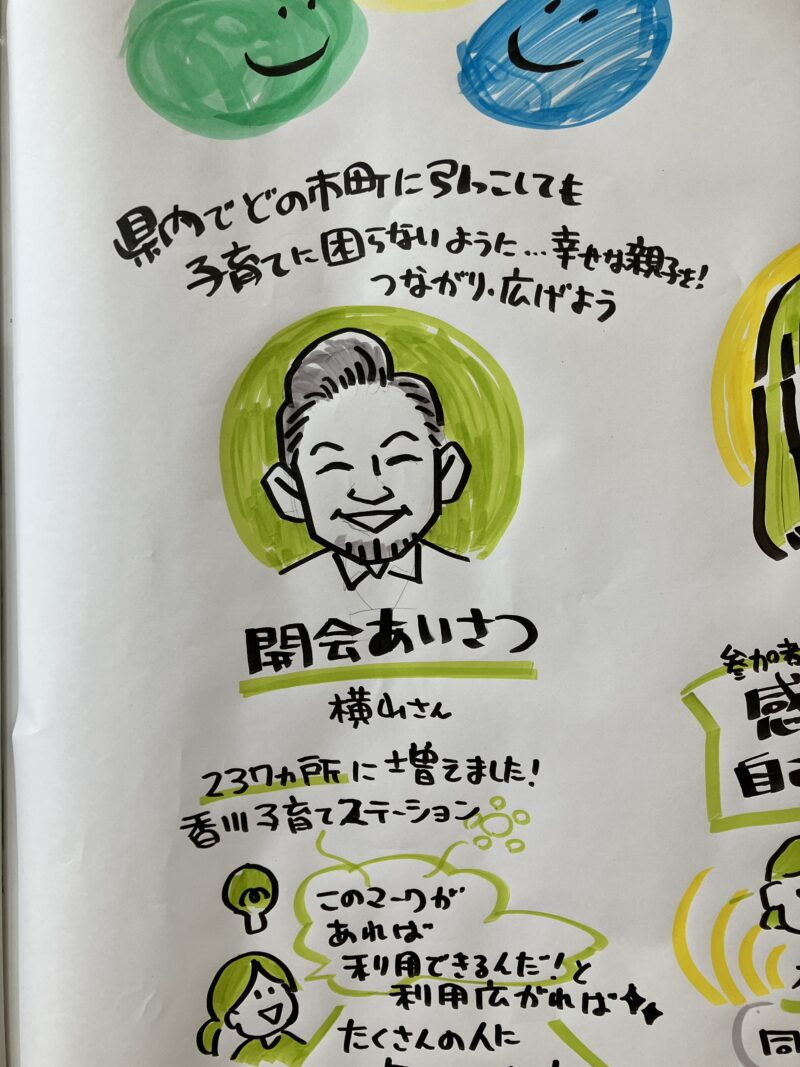 県内でどの市町に引っこしても
子育てに困らないように…幸せな親子を!
つながり・広げよう
開会あいさつ
横山さん
237ヵ所に増えました!
香川子育てステーション
このマークが
あれば
利用できるんだ!と
利用広がれば
たくさんの人に
参加者
感
自
同